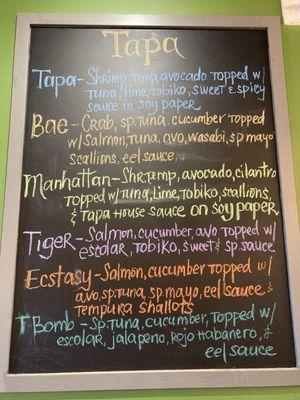 Tapa
Tapa - Shrimp Temp, avocado topped w/
tuna, lime, tobiko, sweet & spicy
sauce in soy paper
Bae - Crab, sp. tuna, cucumber topped
w/ Salmon, Tuna, avo, wasabi, sp mayo
scallions, eel sauce
Manhattan - Shr. Temp, avocado, cilantro
Topped w/ tuna, Lime, Tobiko, scallions,
& Tapa House Sauce on Soy paper
Tiger - Salmon, cucumber, avo topped w/
escolar, Tobiko, sweet & sp. sauce
Ecstasy - Salmon, cucumber topped w/
avo, sp. tuna, sp. mayo, eel sauce &
Tempura shallots
T Bomb - Sp. Tuna, cucumber, Topped w/
escolar, jalapeno, Rojo Habanero, &
eel sauce